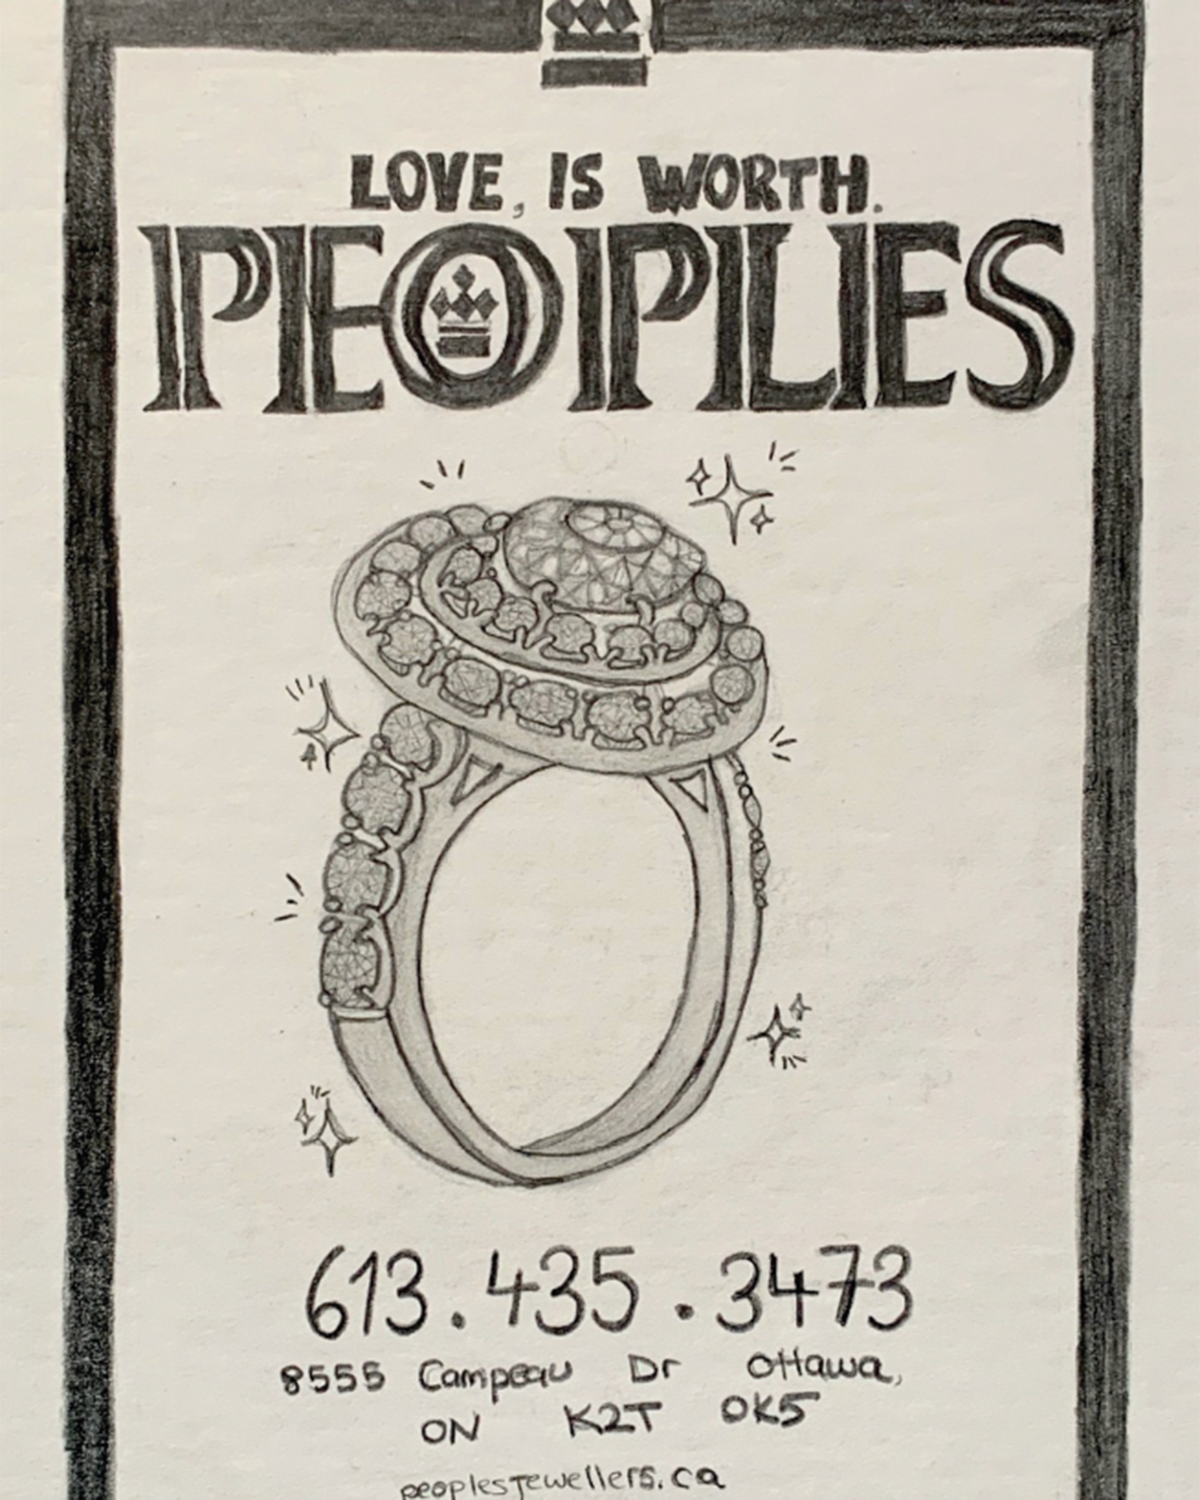 LOVE, IS WORTH.
PEOPLES
613.435.3473
8555 Campeau Dr Ottawa,
ON K2T 0K5
peoplesjewellers.ca